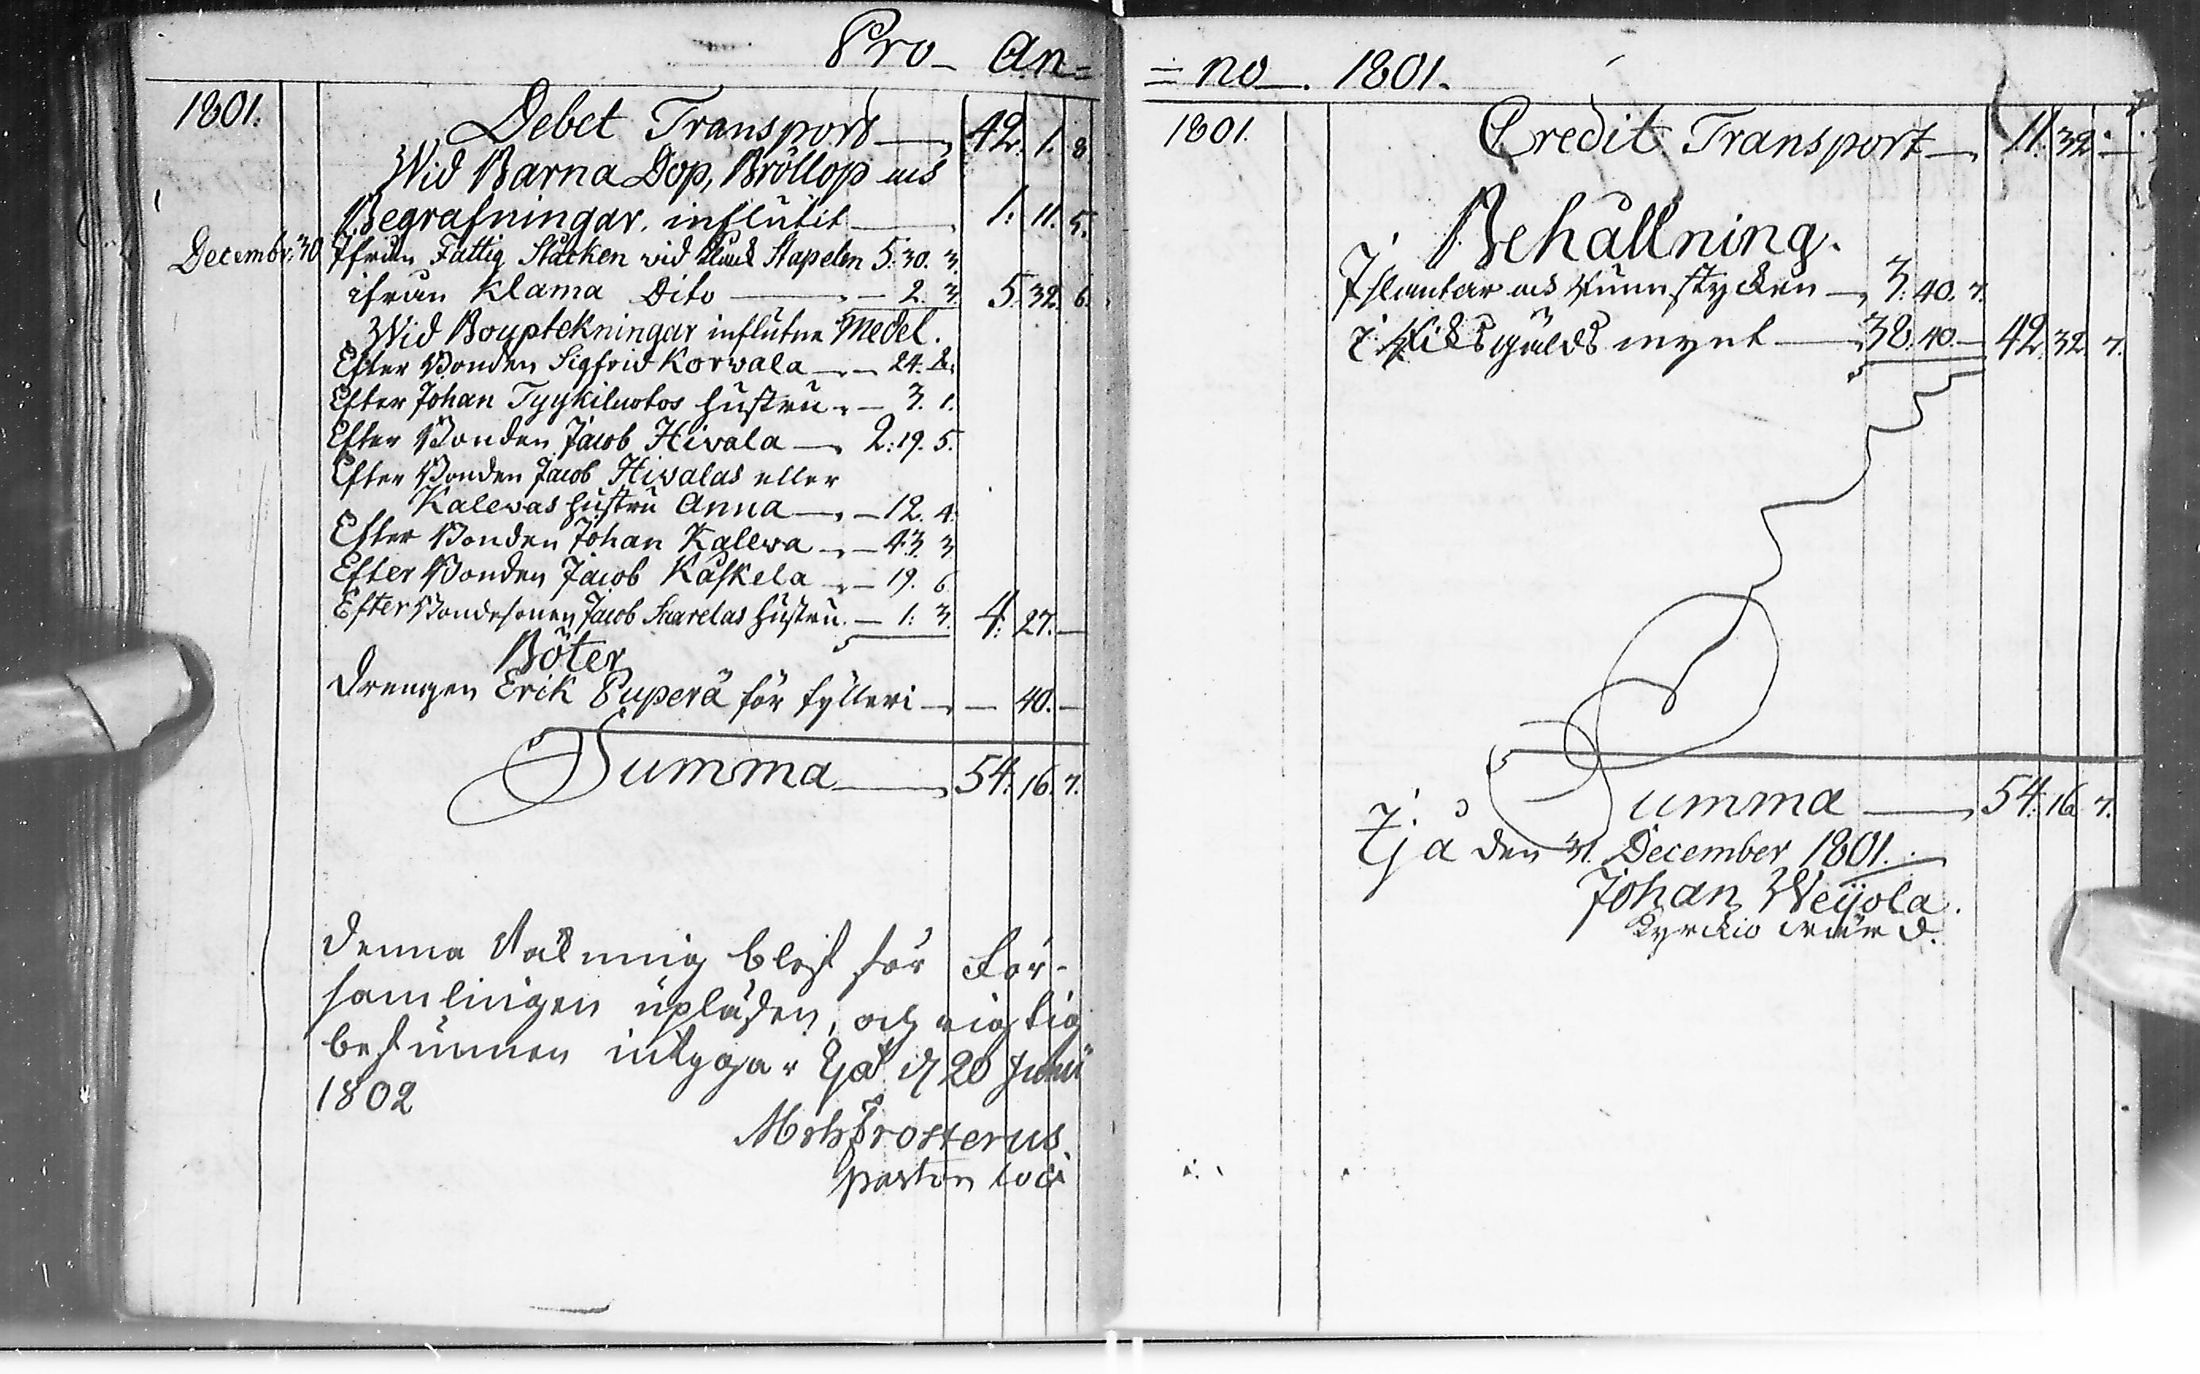 Pro- An=
1801.
Debet Transport — 42. 1. 8
Wid Barna Dop, Bröllop och
Begrafningar. influtit — 1: 11. 5.
Decembr. 30 Ifrån Fattig Stocken vid Klock Stapelen 5: 30. 3.
ifrån Klama Dito — — 2. 3. 5. 32. 6.
Wid Bouptekningar influtne Medel.
Efter Bonden Sigfrid Korvala — — 24. 2.
Efter Johan Tyykiluotos hustru — 3. 1.
Efter Bonden Jacob Hivala — 2: 19. 5.
Efter Bonden Jacob Hivalas eller
Kalevas hustru Anna — — 12. 4.
Efter Bonden Johan Kalewa — — 43. 3
Efter Bonden Jacob Kåskela — — 19. 6
Efter Bondesonen Jacob Saarelas hustru. — 1: 3. 4: 27. —
Böter
Drengen Erik Puperä för fylleri — — 40. —
Summa — 54: 16. 7.
Denna Räkning blef för För-
samlingen upläsen, och rigtig
befunnen intygar Ijå d 20 Junii
1802
Frosterus
Pastor loci
=no. 1801.
1801.
Credit Transport — 11. 32. —
Behållning.
I slantar och Runstycken — 3: 40. 7.
i Riksgälds mynt — 38: 40. — 42. 32. 7.
Summa — 54: 16. 7.
Ijå den 31. December 1801.
Johan Weijola.
Kyrckio värd.